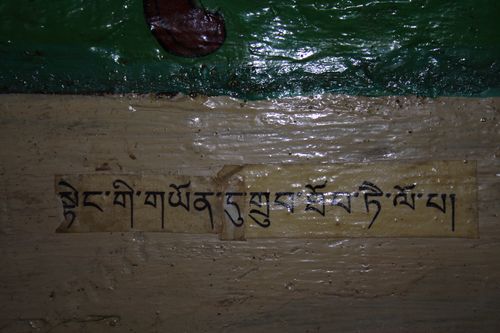 སྟེང་གི་གཡོན་དུ་གྲུབ་ཐོབ་ཏཻ་ལོ་པ།